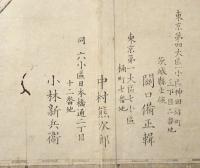 東京第四大區一小區神田錦町
三丁目二番地
茨城縣士族
關口備正輯
東京第一大區七小區
楠町七番地
中村熊次郎
同 六小區日本橋通二丁目
十二番地
小林新兵衞